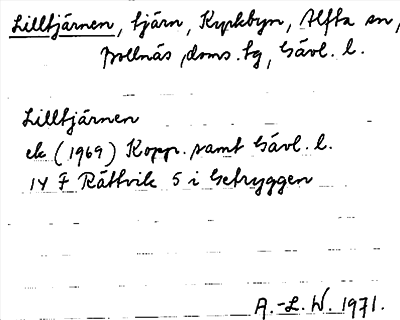 Lilltjärnen, tjärn, Kyrkbyn, Alfta sn,
Bollnäs doms.tg, Gävl. l.
Lilltjärnen
ek (1969) Kopp. samt Gävl. l.
14 F Rättvik 5 i Getryggen
A.-L. W. 1971.